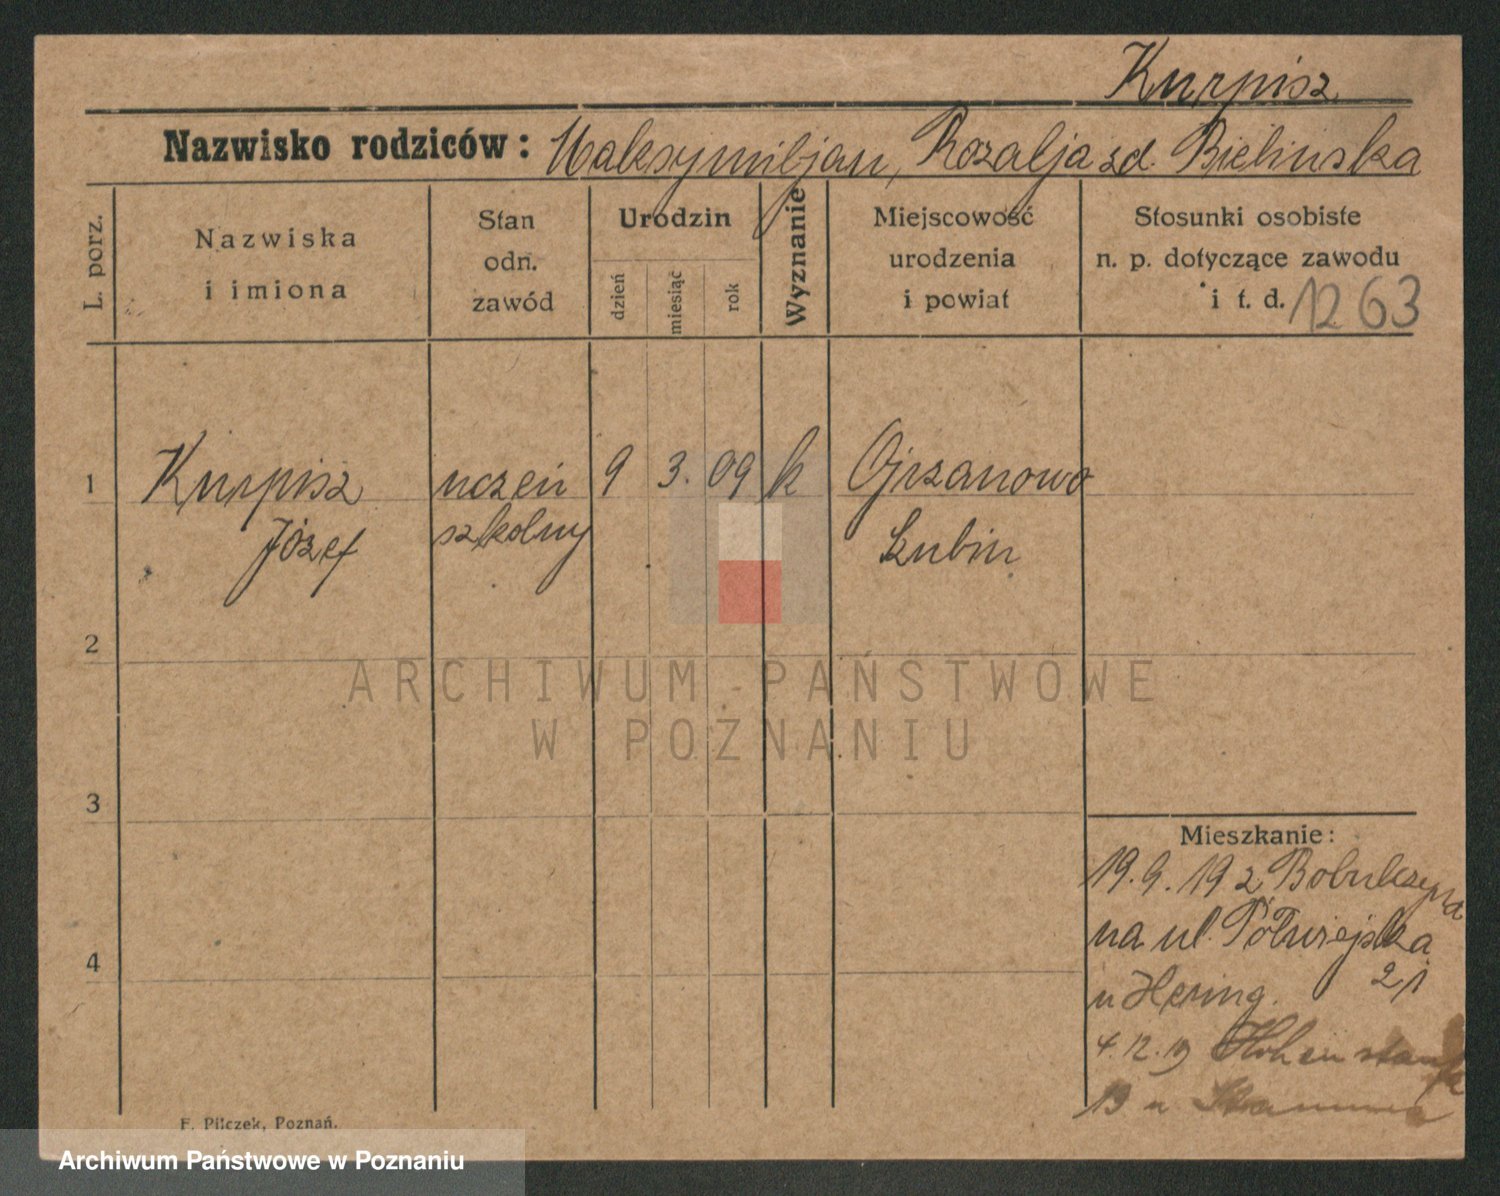 Kurpisz
Nazwisko rodziców: Maksymiljan, Rozalja zd. Bielinska
L. porz.
Nazwiska
i imiona
Stan
odn.
zawód
Urodzin
dzień
miesiąc
rok
Wyznanie
Miejscowość
urodzenia
i powiat
Stosunki osobiste
n. p. dotyczące zawodu
i t. d. 1263
1 Kurpisz uczeń 9 3. 09 k Ojrzanowo
Józef szkolny Szubin
2
ARCHIWUM PAŃSTWOWE
W POZNANIU
3
4
Mieszkanie:
19.9.19 z
na ul. Półwiejska
21
u Hering.
4.12.19
19 u
F. Pilczek, Poznań.
Archiwum Państwowe w Poznaniu